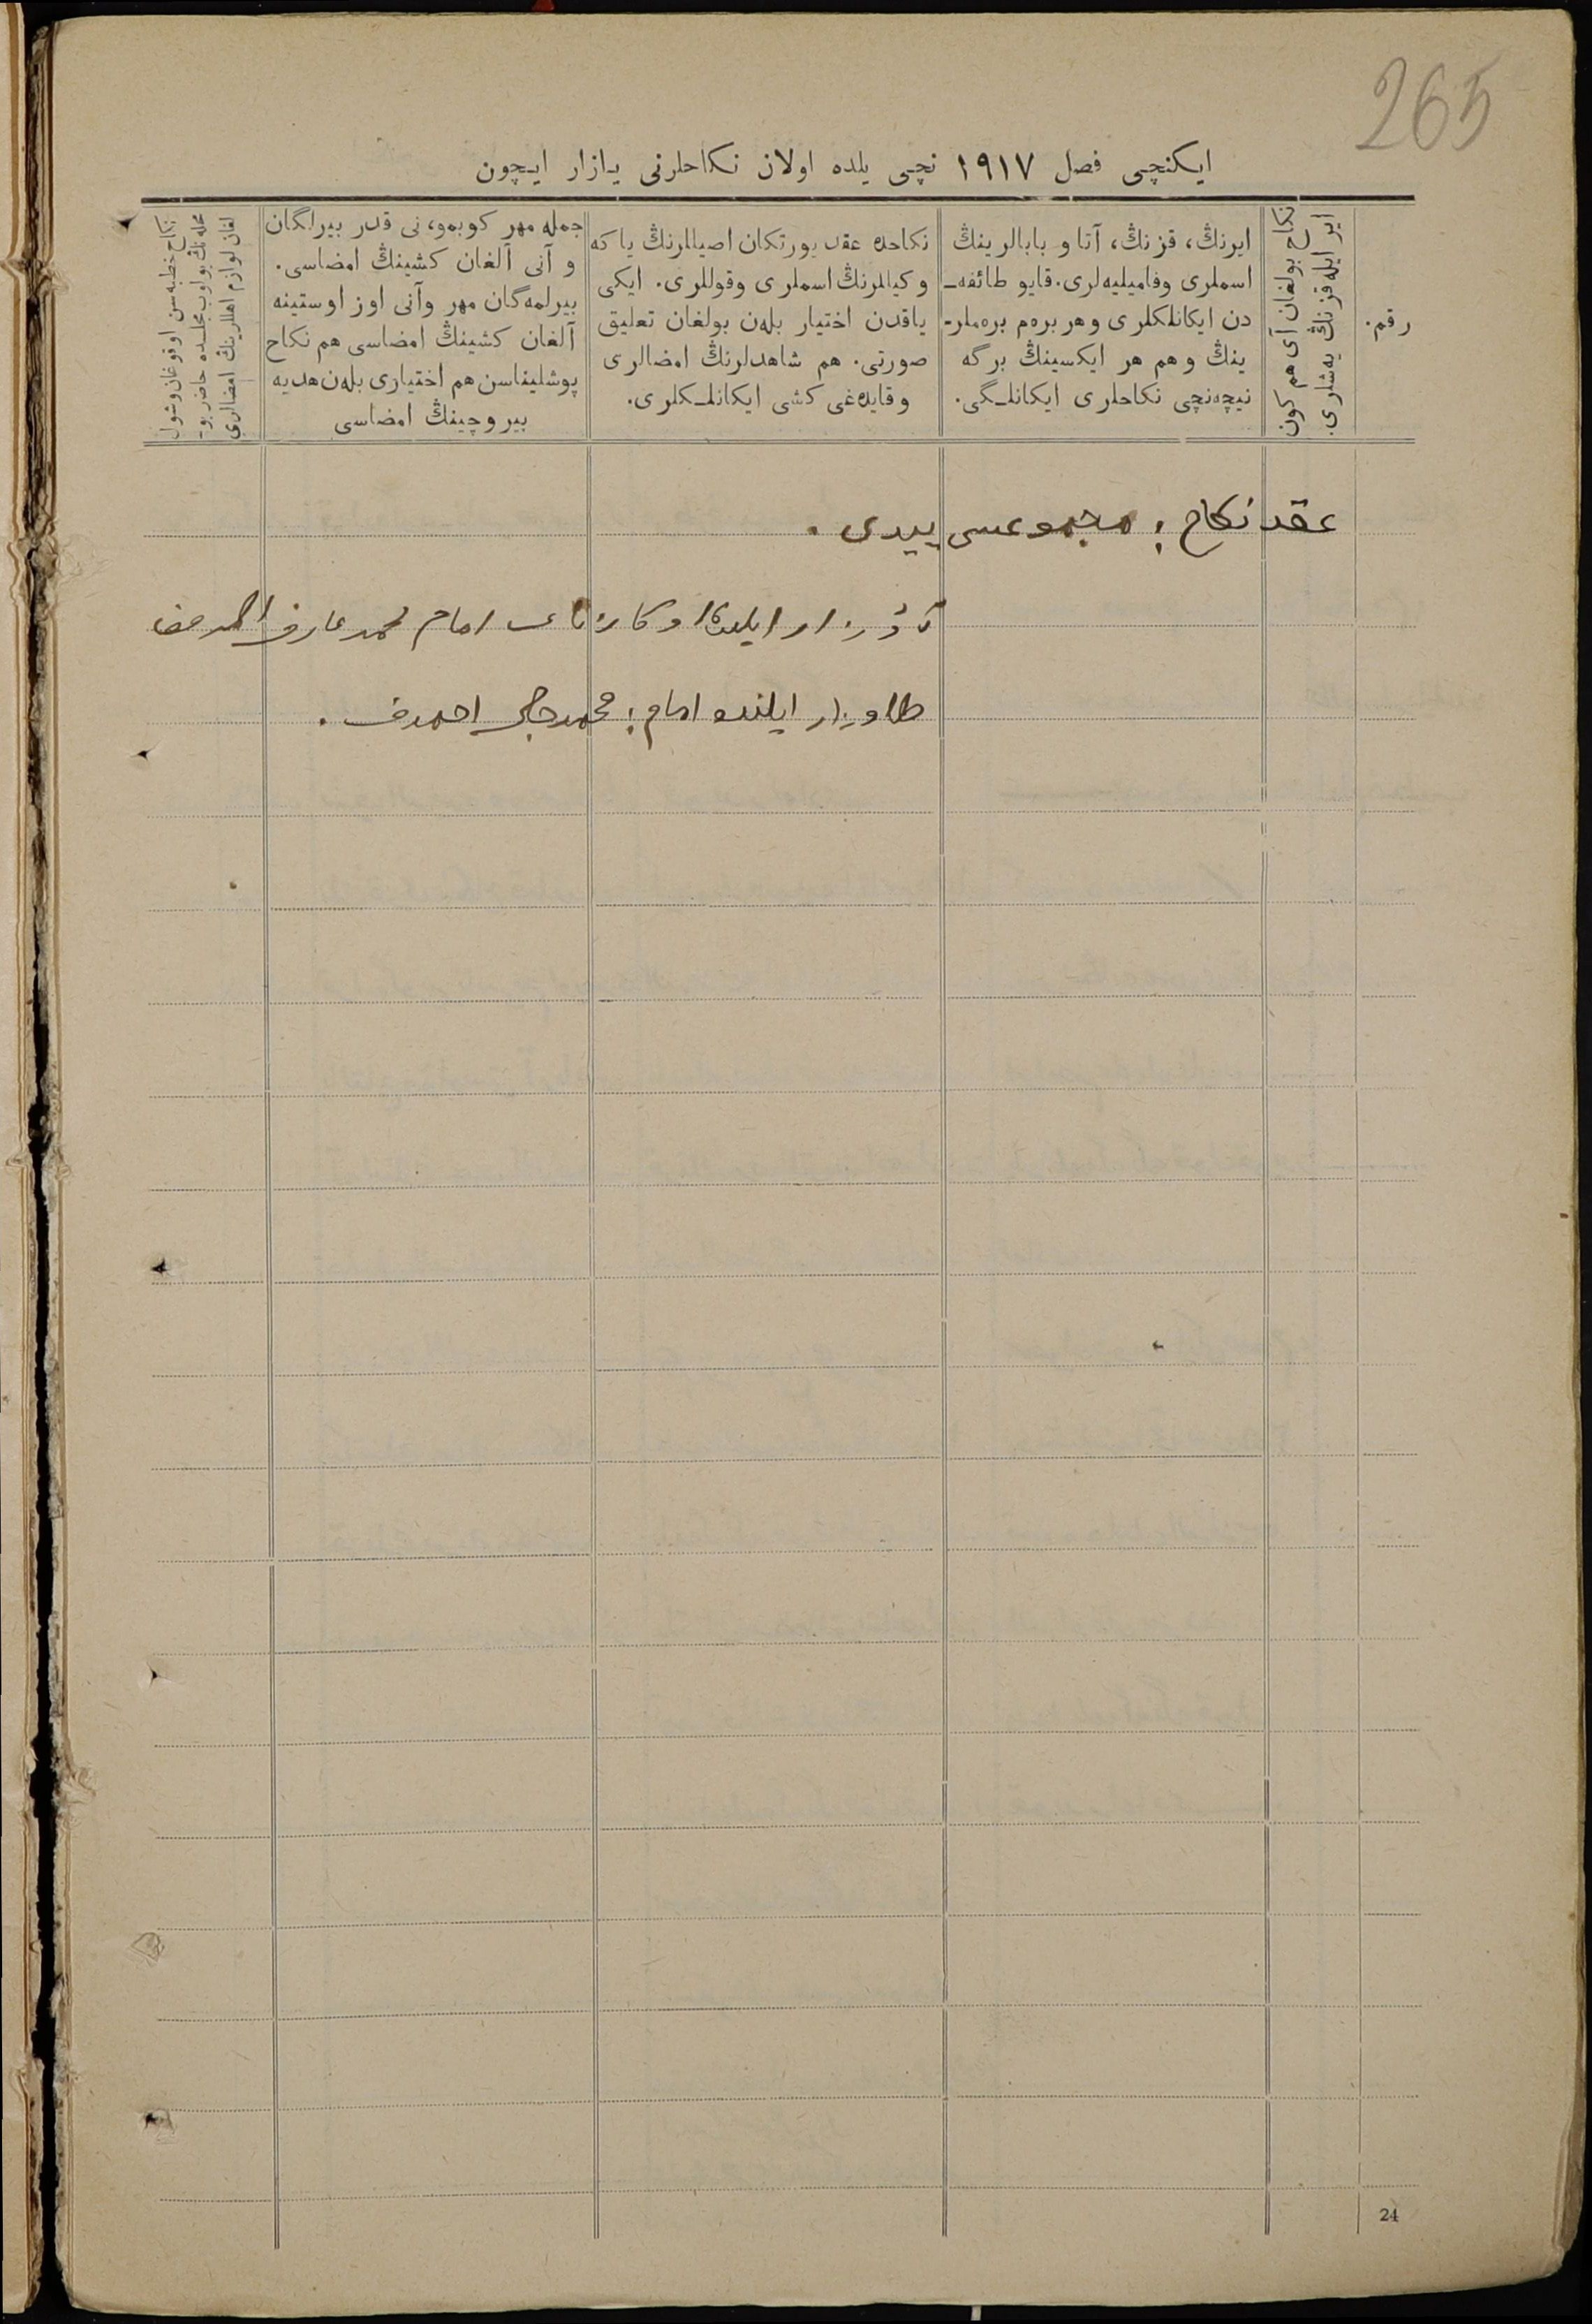 265
ایکنچی فصل ۱۹۱۷ نچی یلده اولان نکاحلرنی یازار ایچون
رقم.
نکاح بولغان آی هم کون
ایر ایله قزنڭ یه‌شلری.
ایرنڭ، قزنڭ، آتا و بابالرینڭ
اسملری وفامیلیه‌لری. قایو طائفه‌ـ
دن ایکانلکلری و هر بره‌م بره‌ملرـ
ینڭ و هم هر ایکسینڭ برگه
نیچه‌نچی نکاحلری ایکانلـگی.
نکاحده عقد یورتکان اصیللرنڭ یا که
وکیللرنڭ اسملری وقوللری. ایکی
یاقدن اختیار بله‌ن بولغان تعلیق
صورتی. هم شاهدلرنڭ امضالری
و قایده‌غی کشی ایکانلـکلری.
جمله مهر کوبمو، نی قدر بیرلگان
و آنی آلغان کشینڭ امضاسی.
بیرلمه‌گان مهر وآنی اوز اوستینه
آلغان کشینڭ امضاسی هم نکاح
پوشلیناسن هم اختیاری بله‌ن هدیه
بیروچینڭ امضاسی
نکاح خطبه‌سن اوقوغان وشول
محله‌نڭ بولوب مجلسده حاضر بوـ
لغان لوازم اهللرینڭ امضالری
عقد نکاح؛ مجموعسی ییدی.
امام محمدعارف
امام؛ محمدجان احمدف.
24